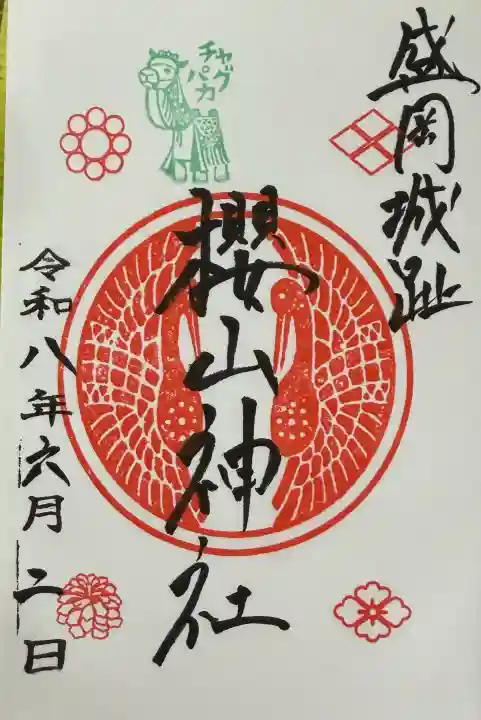 盛岡城趾
チャグ
パカ
櫻山神社
令和八年六月二日